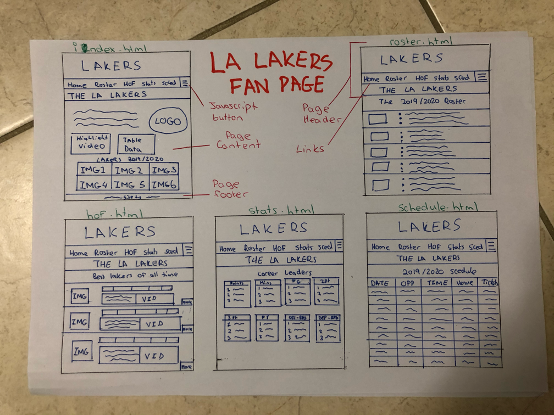 index.html
LAKERS
Home Roster HOF Stats Sced
THE LA LAKERS
LOGO
Highlight Video
Table Data
LAKERS 2019/2020
IMG1 IMG 2 IMG 3
IMG4 IMG 5 IMG6
LA LAKERS
FAN PAGE
Javascript
button
Page
Content
Page
footer
Page
Header
Links
roster.html
LAKERS
Home Roster HOF Stats Sced
THE LA LAKERS
The 2019/2020 Roster
hof.html
LAKERS
Home Roster HOF Stats Sced
THE LA LAKERS
Best lakers of all time
IMG VID
IMG VID
IMG VID
stats.html
LAKERS
Home Roster HOF Stats Sced
THE LA LAKERS
Career Leaders
Points
1
2
3
1
2
3
1
2
3
1
2
3
1
2
3
1
2
3
1
2
3
1
2
3
schedule.html
LAKERS
Home Roster HOF Stats Sced
THE LA LAKERS
2019/2020 Scedule
DATE OPP TIME Venue